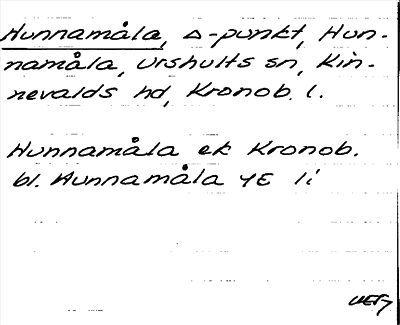 Hunnamåla, △-punkt, Hun-
namåla, Urshults sn, Kin-
nevalds hd, Kronob. l.
Hunnamåla ek Kronob.
bl. Hunnamåla 4E 1i